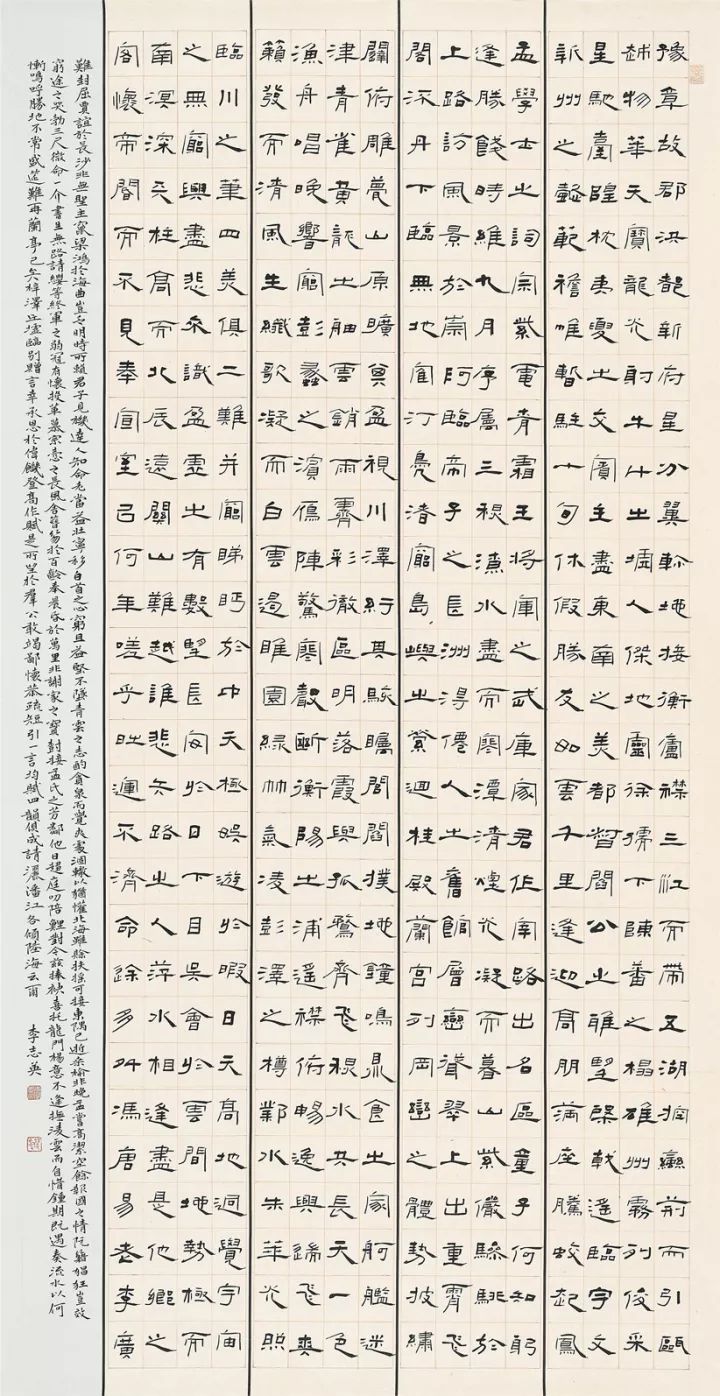 豫章故郡洪都新府星分翼軫地接衡廬襟三江而帶五湖控蠻荊而引甌
越物華天寶龍光射牛斗之墟人傑地靈徐孺下陳蕃之榻雄州霧列俊采
星馳臺隍枕夷夏之交賓主盡東南之美都督閻公之雅望棨戟遙臨宇文
新州之懿範襜帷暫駐十旬休假勝友如雲千里逢迎高朋滿座騰蛟起鳳
孟學士之詞宗紫電青霜王將軍之武庫家君作宰路出名區童子何知躬
逢勝餞時維九月序屬三秋潦水盡而寒潭清煌光凝而暮山紫儼驂騑於
上路訪風景於崇阿臨帝子之長洲得僊人之舊館層巒聳翠上出重霄飛
閣流丹下臨無地鶴汀鳧渚窮島嶼之縈迴桂殿蘭宮列岡巒之體勢披繡
闥俯雕甍山原曠其盈視川澤紆其駭矚閭閻撲地鐘鳴鼎食之家舸艦迷
津青雀黃龍之舳雲銷雨霽彩徹區明落霞與孤鶩齊飛秋水共長天一色
漁舟唱晚響窮彭蠡之濱雁陣驚寒聲斷衡陽之浦遙襟俯暢逸興遄飛爽
籟發而清風生纖歌凝而白雲遏睢園綠竹氣凌彭澤之樽鄴水朱華光照
臨川之筆四美俱二難并窮睇眄於中天極娛遊於暇日天高地迥覺宇宙
之無窮興盡悲來識盈虛之有數望長安於日下目吳會於雲間地勢極而
南溟深天柱高而北辰遠關山難越誰悲失路之人萍水相逢盡是他鄉之
客懷帝閽而不見奉宣室以何年嗟乎時運不濟命途多舛馮唐易老李廣
難封屈賈誼於長沙非無聖主竄梁鴻於海曲豈乏明時所賴君子見機達人知命老當益壯寧移白首之心窮且益堅不墜青雲之志酌貪泉而覺爽處涸轍以猶懽北海雖賒扶搖可接東隅已逝桑榆非晚孟嘗高潔空餘報國之情阮籍猖狂豈效
窮途之哭勃三尺微命一介書生無路請纓等終軍之弱冠有懷投筆慕宗慤之長風舍簪笏於百齡奉晨昏於萬里非謝家之寶樹接孟氏之芳鄰他日趨庭叨陪鯉對今茲捧袂喜托龍門楊意不逢撫凌雲而自惜鍾期既遇奏流水以何
慚嗚呼勝地不常盛筵難再蘭亭已矣梓澤丘墟臨別贈言幸承恩於偉餞登高作賦是所望於群公敢竭鄙懷恭疏短引一言均賦四韻俱成請灑潘江各傾陸海云爾 李志英